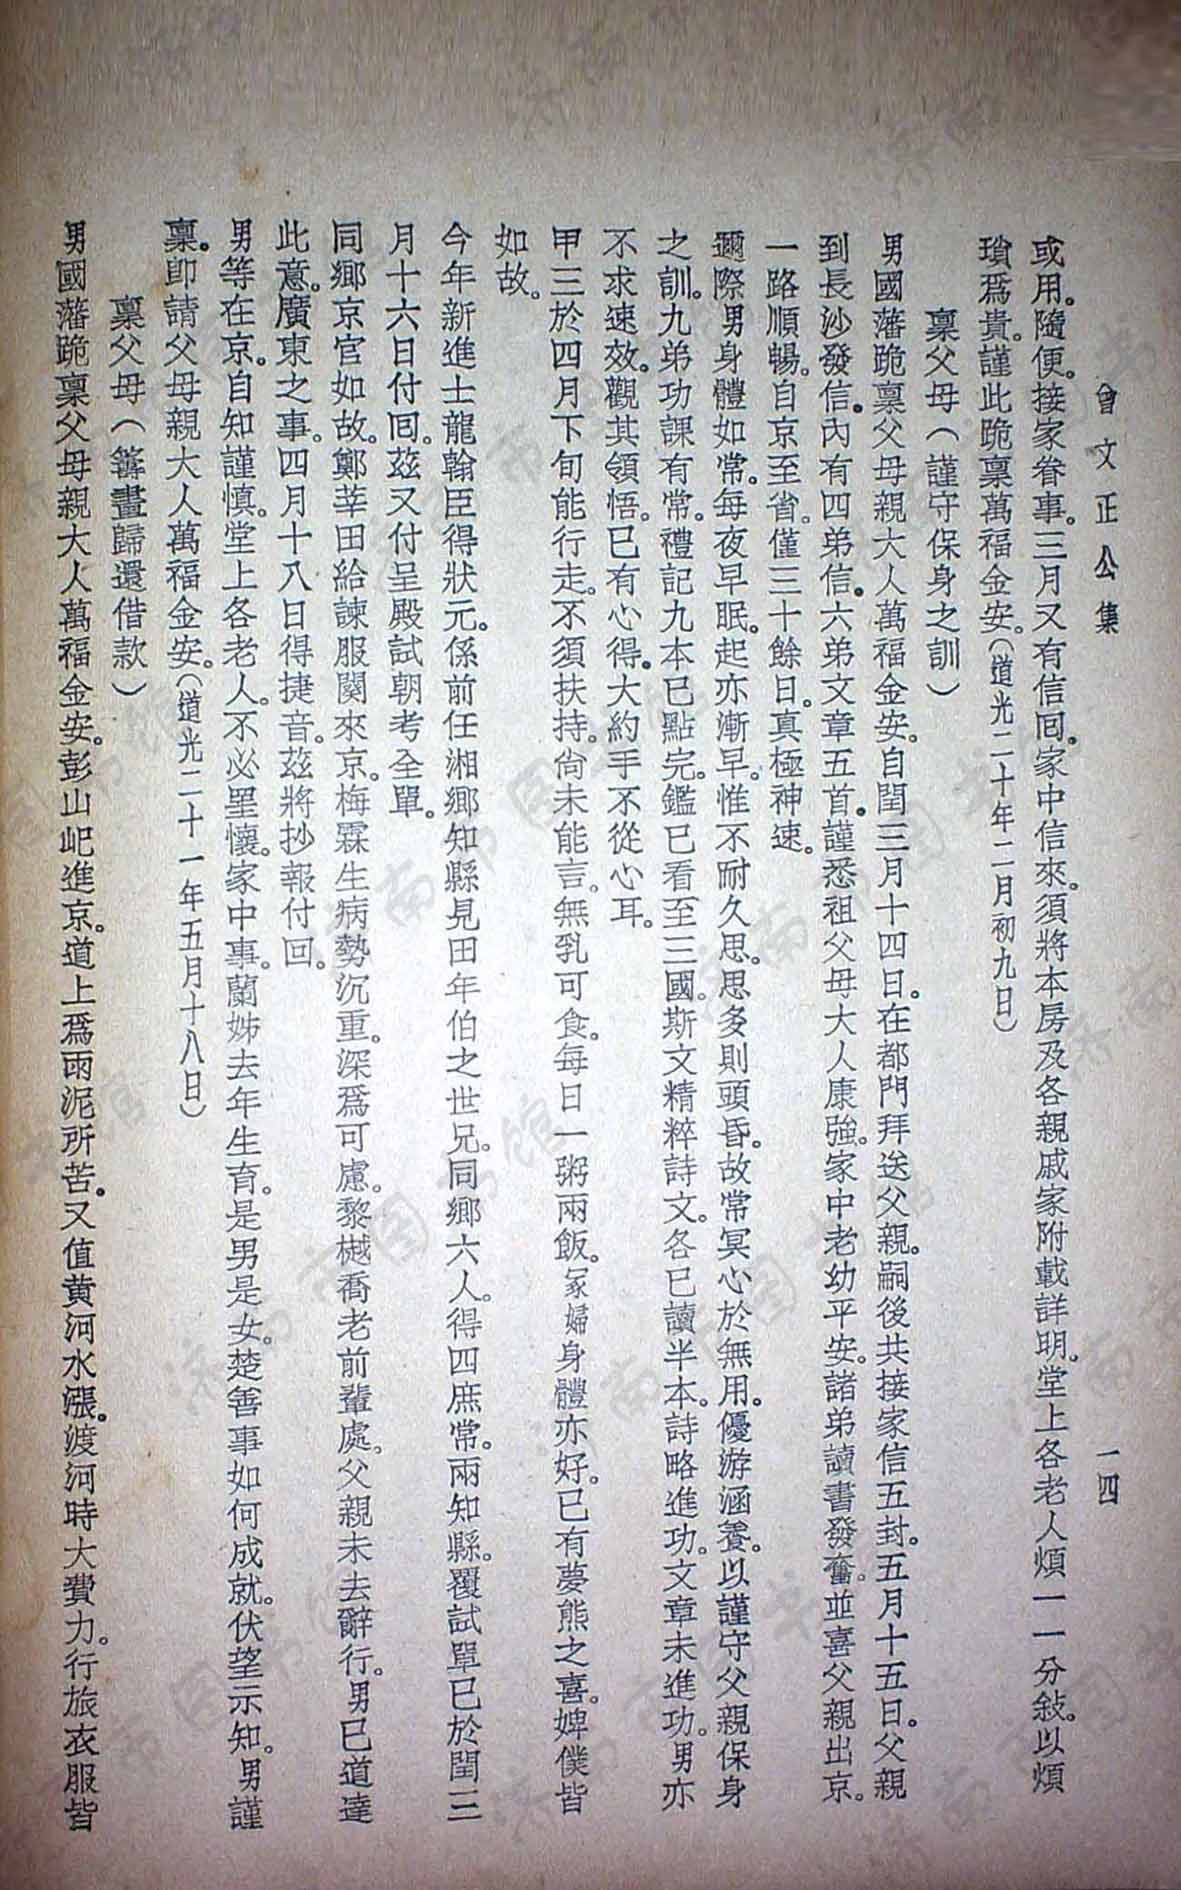 曾文正公集 一四
或用。隨便。接家眷事。三月又有信回。家中信來。須將本房及各親戚家附載詳明。堂上各老人煩一一分敍。以煩
瑣爲貴。謹此跪稟萬福金安。(道光二十年二月初九日)
稟父母(謹守保身之訓)
男國藩跪稟父母親大人萬福金安。自閏三月十四日。在都門拜送父親。嗣後共接家信五封。五月十五日。父親
到長沙發信。內有四弟信。六弟文章五首。謹悉祖父母大人康強。家中老幼平安。諸弟讀書發奮。並喜父親出京。
一路順暢。自京至省。僅三十餘日。真極神速。
邇際男身體如常。每夜早眠。起亦漸早。惟不耐久思。思多則頭昏。故常冥心於無用。優游涵養。以謹守父親保身
之訓。九弟功課有常。禮記九本已點完。鑑已看至三國。斯文精粹詩文。各已讀半本。詩略進功。文章未進功。男亦
不求速效。觀其領悟。已有心得。大約手不從心耳。
甲三於四月下旬能行走。不須扶持。尙未能言。無乳可食。每日一粥兩飯。冢婦身體亦好。已有夢熊之喜。婢僕皆
如故。
今年新進士龍翰臣得狀元。係前任湘鄉知縣見田年伯之世兄。同鄉六人。得四庶常。兩知縣。覆試單已於閏三
月十六日付回。茲又付呈殿試朝考全單。
同鄉京官如故。鄭莘田給諫服闋來京。梅霖生病勢沉重。深爲可慮。黎樾喬老前輩處。父親未去辭行。男已道達
此意。廣東之事。四月十八日得捷音。茲將抄報付回。
男等在京。自知謹慎。堂上各老人。不必罣懷。家中事。蘭姊去年生育。是男是女。楚善事如何成就。伏望示知。男謹
稟。卽請父母親大人萬福金安。(道光二十一年五月十八日)
稟父母(籌畫歸還借款)
男國藩跪稟父母親大人萬福金安。彭山屺進京。道上爲雨泥所苦。又值黃河水漲。渡河時大費力。行旅衣服皆